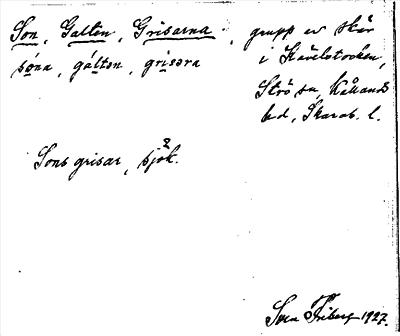 Son, Galten, Grisarna, grupp av skär
sóna, gáltən, grisəra i Kävelstocken,
Strö sn, Kållands
hd, Skarab. l.
Sons grisar, sjök.
Sven Friberg 1927.